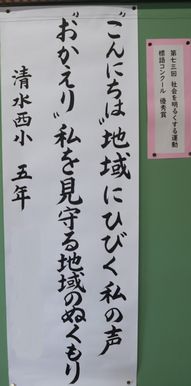 第七三回 社会を明るくする運動
標語コンクール 優秀賞
"こんにちは"地域にひびく私の声
"おかえり"私を見守る地域のぬくもり
清水西小 五年